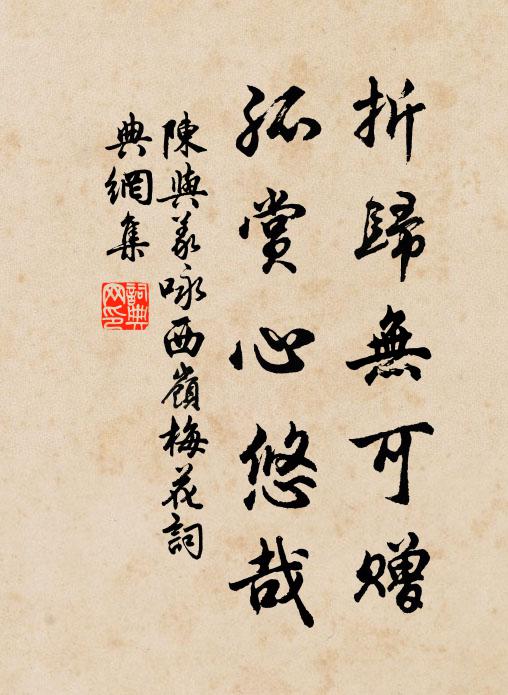 折歸無可贈
孤賞心悠哉
陳與義咏西嶺梅花詞
典網集
詞典网印